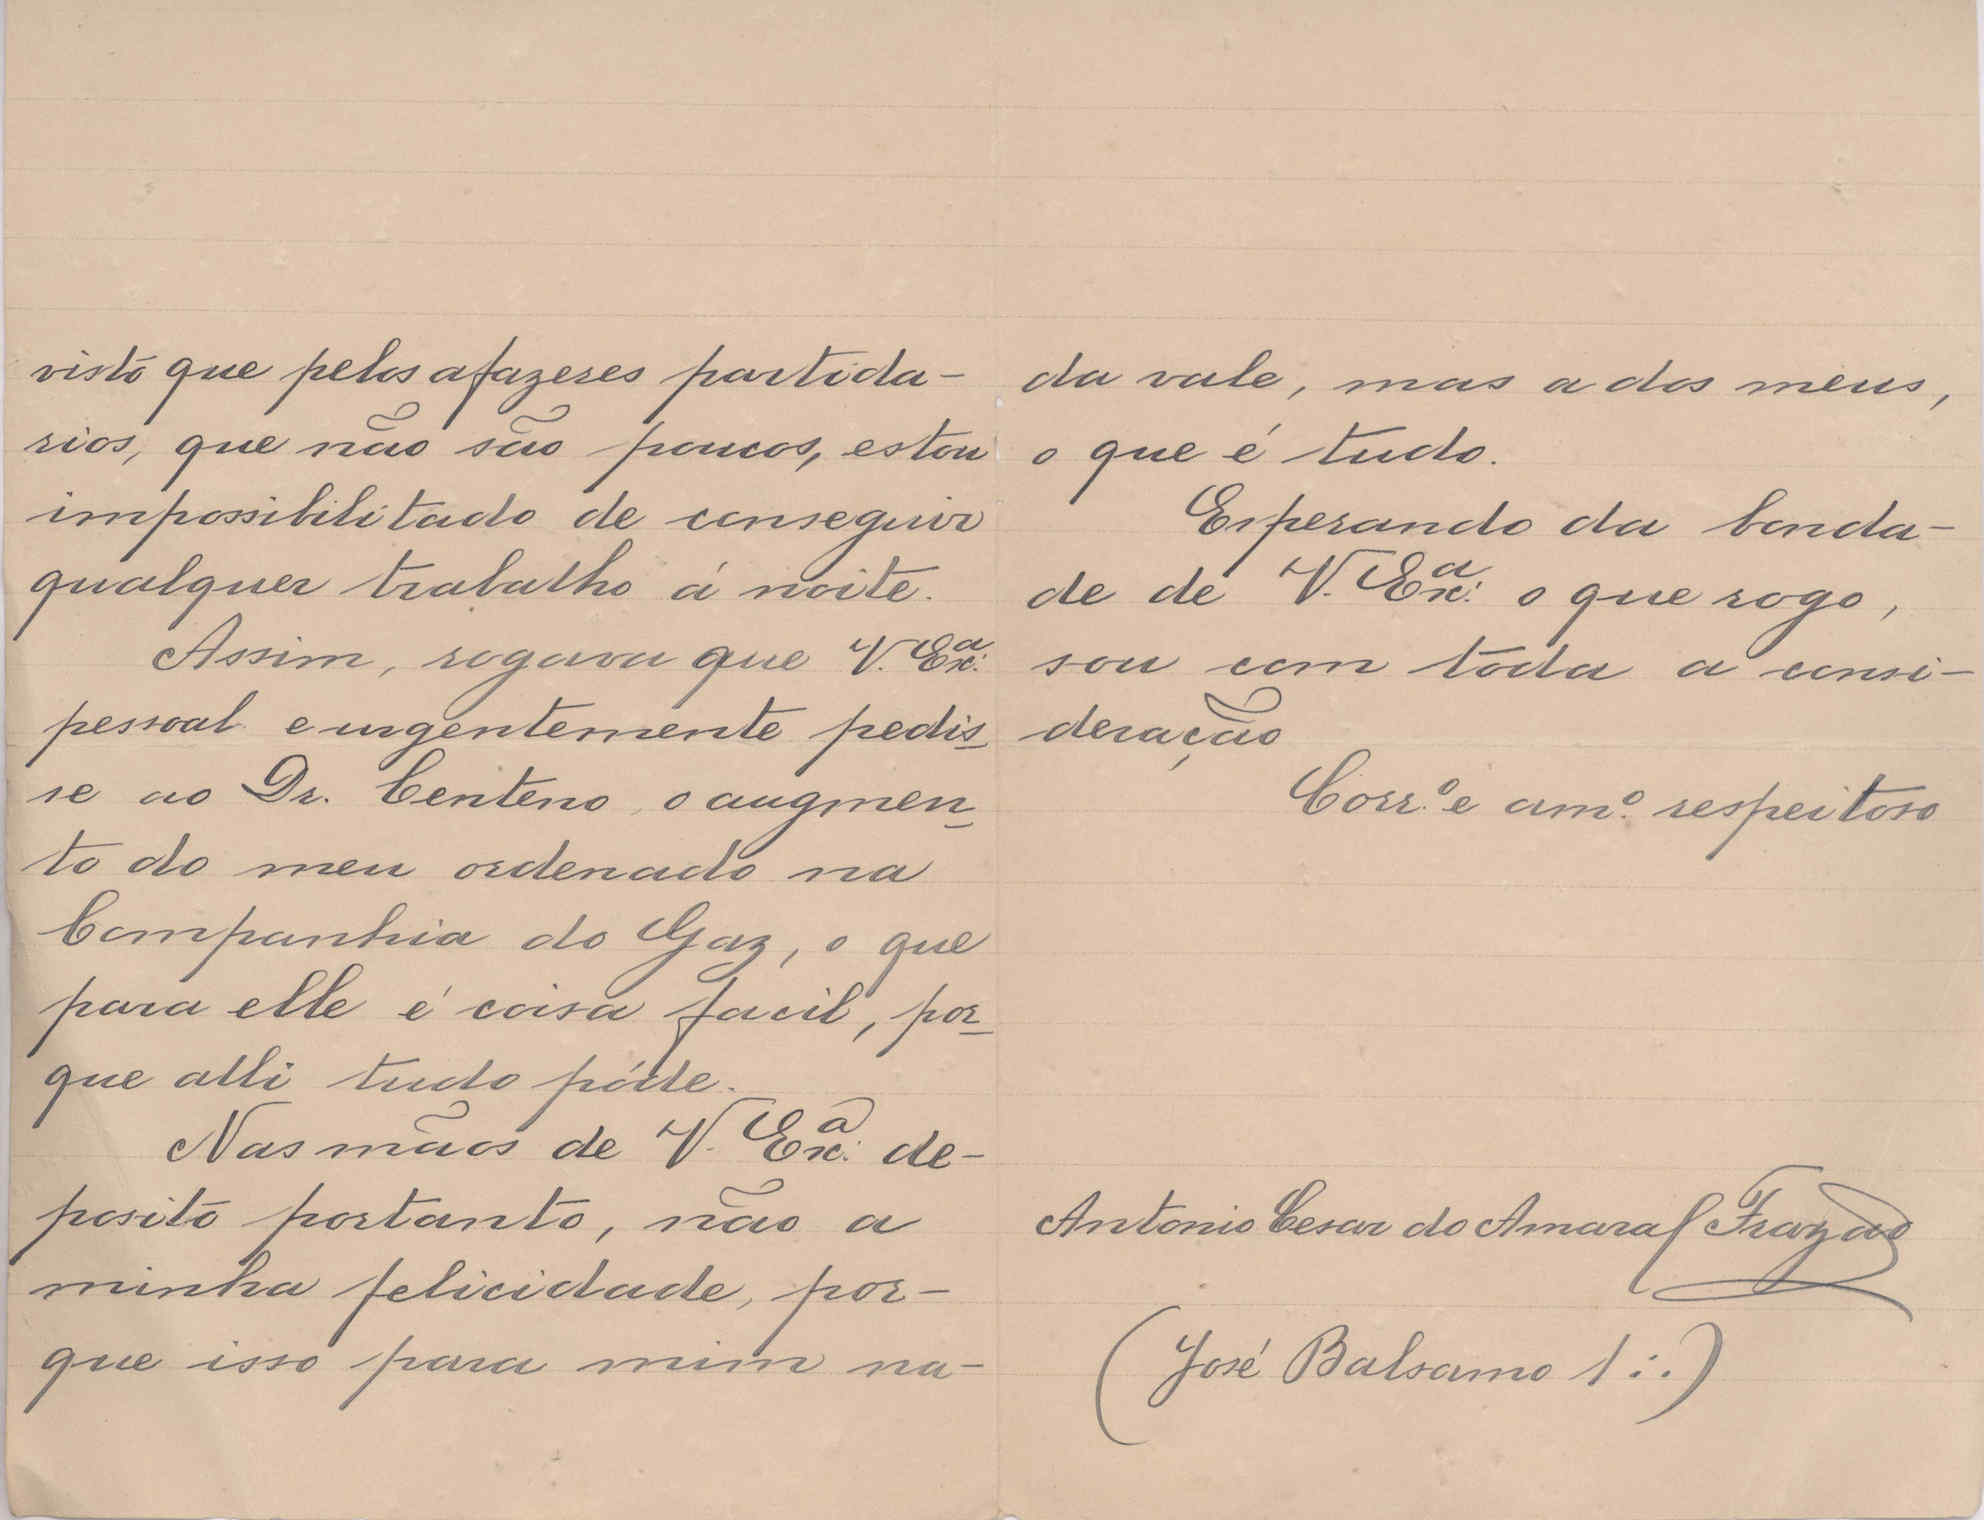 visto que pelos afazeres partida-
rios, que não são poucos, estou
impossibilitado de conseguir
qualquer trabalho á noite.
Assim, rogava que V. Ex.ª
pessoal e urgentemente pedis-
se ao Dr. Centeno o augmen-
to do meu ordenado na
Companhia do Gaz, o que
para elle é coisa facil, por-
que alli tudo póde.
Nas mãos de V. Ex.ª de-
posito portanto, não a
minha felicidade, por-
que isso para mim na-
da vale, mas a dos meus,
o que é tudo.
Esperando da bonda-
de de V. Ex.ª o que rogo,
sou com toda a consi-
deração
Corr.º e am.º respeitoso
Antonio Cesar do Amaral Frazão
(José Balsamo 1∴)